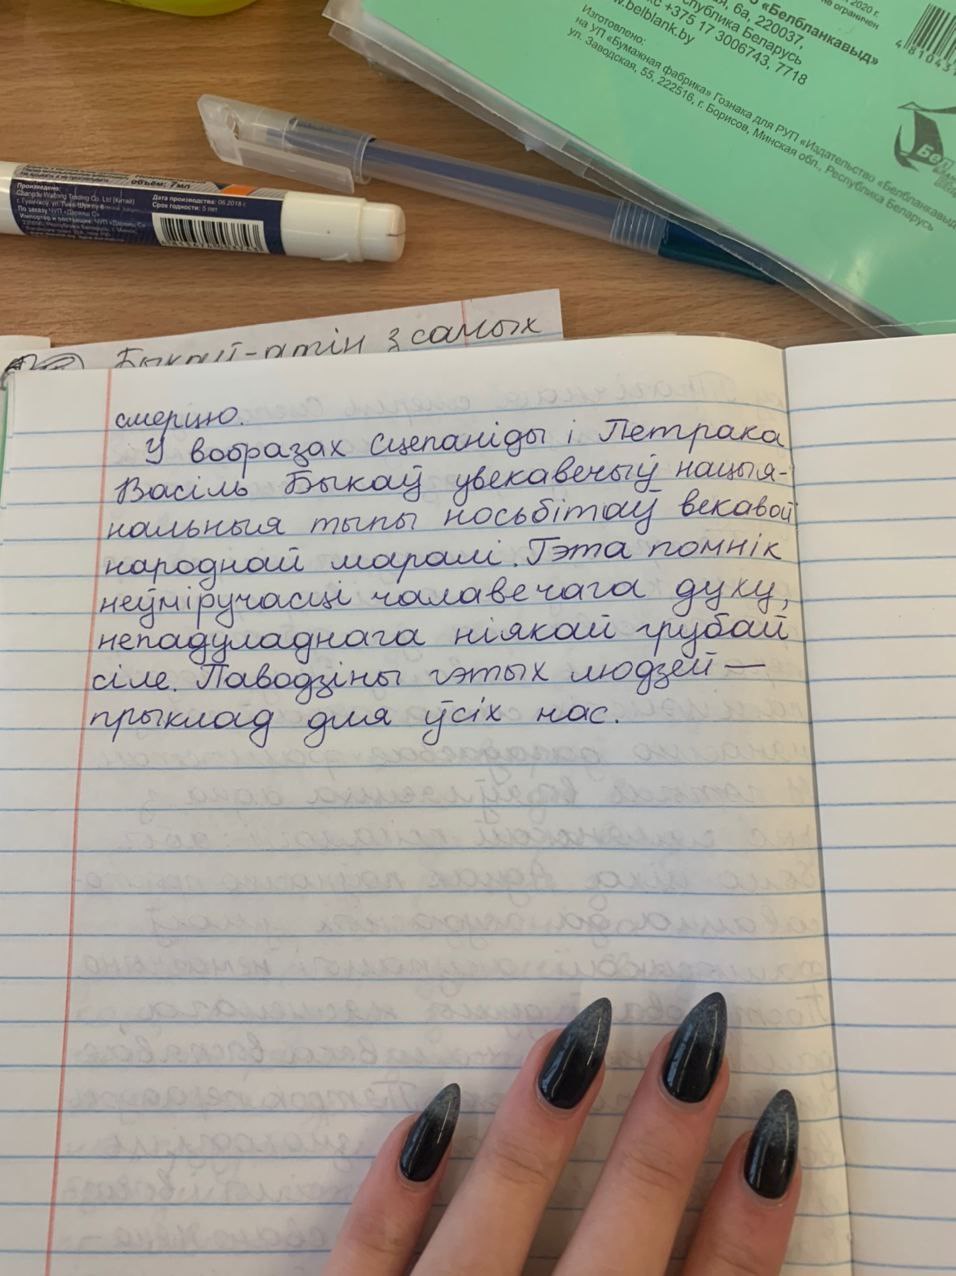 2020 г.
о «Белбланкавыд»
ая, 6а, 220037,
спублика Беларусь
кс +375 17 3006743, 7718
www.belblank.by
Изготовлено:
на УП «Бумажная фабрика» Гознака для РУП «Издательство «Белбланкавыд»
ул. Заводская, 55, 222516, г. Борисов, Минская обл., Республика Беларусь
объём: 7мл
Произведено:
Дата производства: 06 2018 г.
Срок годности: 5 лет
Быкаў-адзін з самых
смерцю.
У вобразах Сцепаніды і Петрака
Васіль Быкаў увекавечыў нацыя-
нальныя тыпы носьбітаў векавой
народнай маралі. Гэта помнік
неўміручасці чалавечага духу,
непадуладнага ніякай грубай
сіле. Паводзіны гэтых людзей —
прыклад для ўсіх нас.